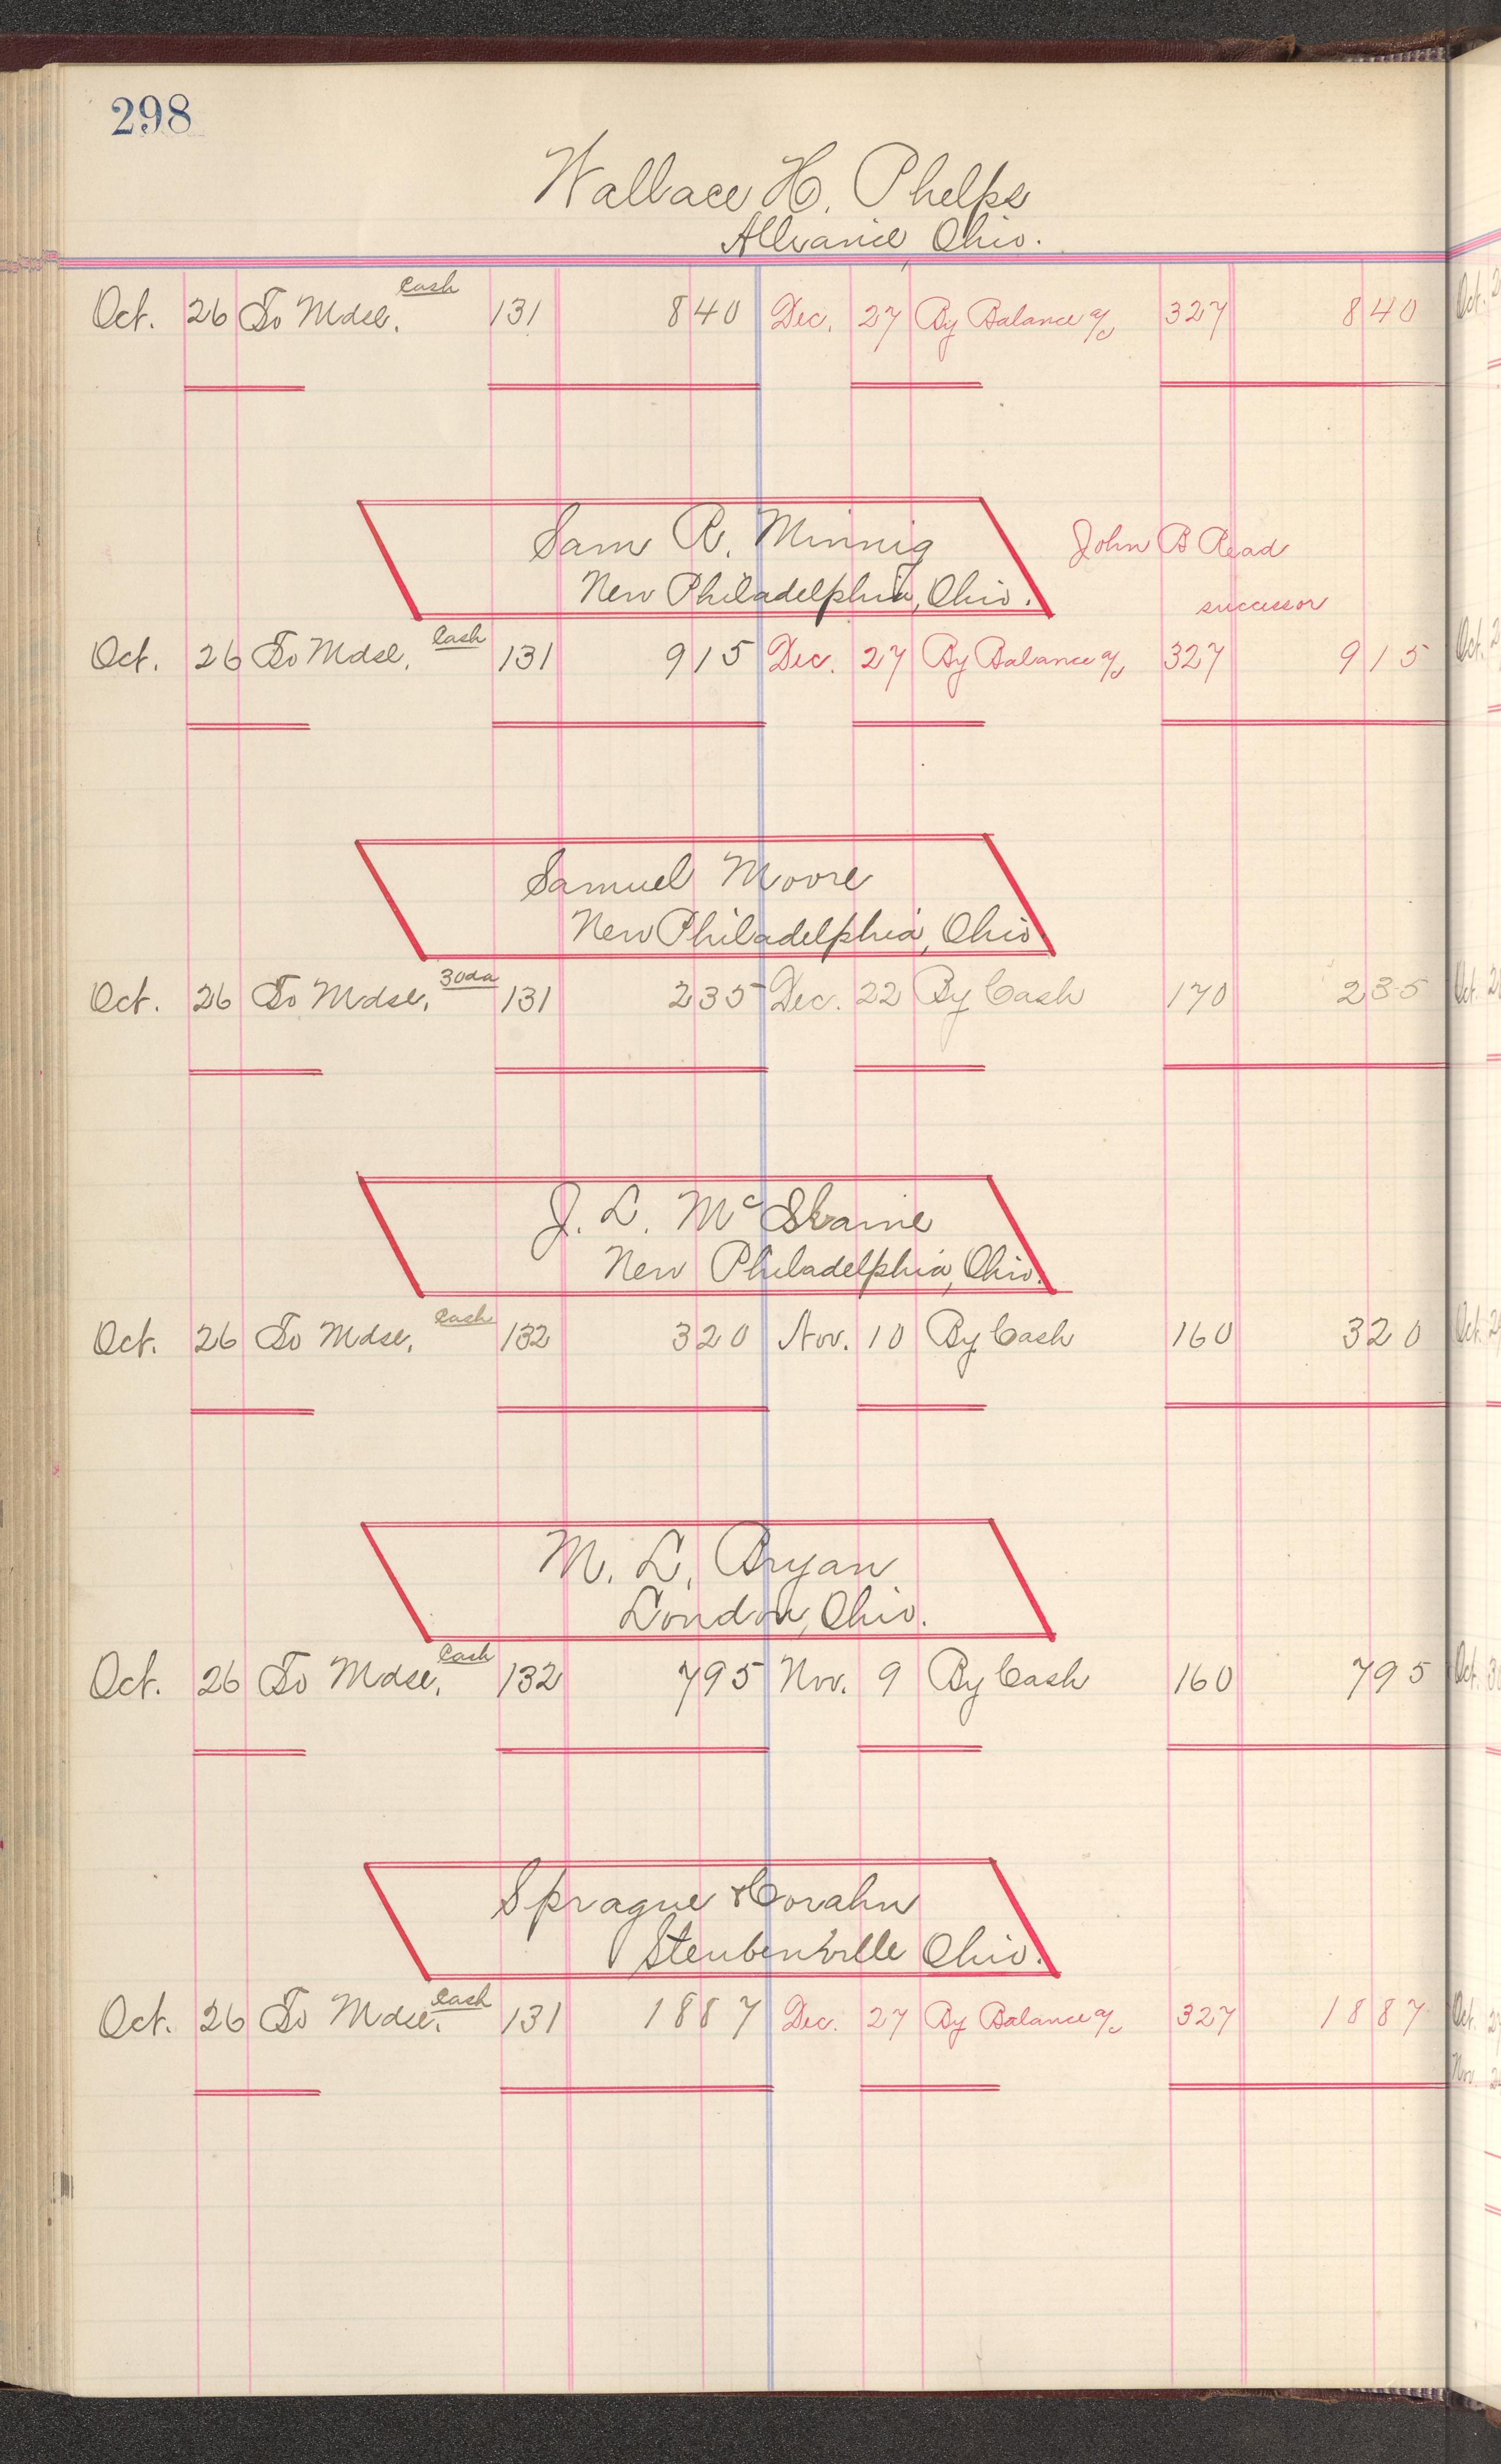 298
Wallace H. Phelps
Alliance Ohio.
Oct. 26 To Mdse. Cash 131 8 40 Dec. 27 By Balance a/c 327 8 40
Sam R. Minnig John B Read
New Philadelphia, Ohio. successor
Oct. 26 To Mdse. Cash 131 9 15 Dec. 27 By Balance a/c 327 9 15
Samuel Moore
New Philadelphia, Ohio
Oct. 26 To Mdse. 30da 131 2 35 Dec. 22 By Cash 170 2 35
J. L. McIlvaine
New Philadelphia, Ohio.
Oct. 26 To Mdse. Cash 132 3 20 Nov. 10 By Cash 160 3 20
M. L. Bryan
London, Ohio.
Oct. 26 To Mdse. Cash 132 7 95 Nov. 9 By Cash 160 7 95
Sprague & Corahn
Steubenville Ohio.
Oct. 26 To Mdse. Cash 131 18 87 Dec. 27 By Balance a/c 327 18 87